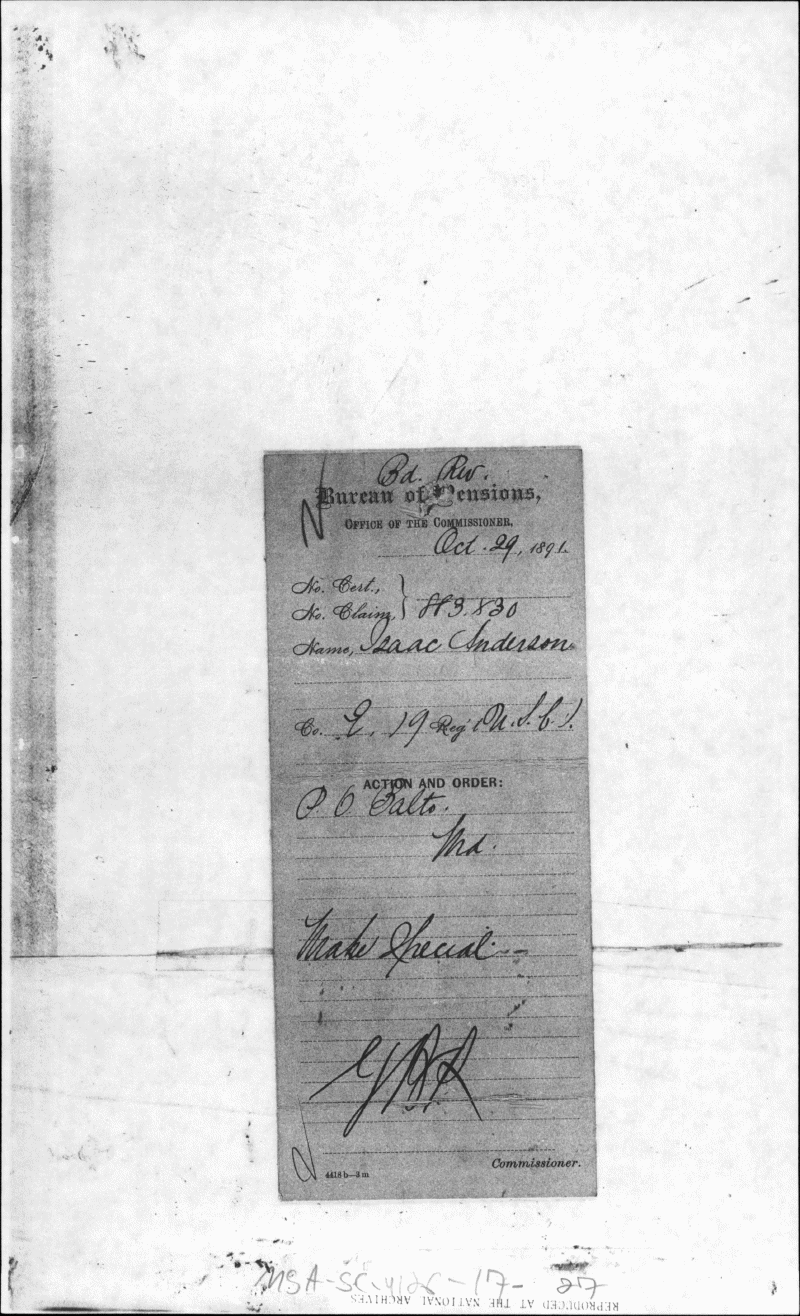 Bd. Rev.
Bureau of Pensions,
OFFICE OF THE COMMISSIONER,
Oct. 29, 1891.
No. Cert.,
No. Claim, 883.830
Name, Isaac Anderson
Co. E, 19 Reg't U.S.C.T.
ACTION AND ORDER:
P O Balto.
Md.
Make Special
Commissioner.
4418 b—3 m
MSA-SC-4126-17- 27
REPRODUCED AT THE NATIONAL ARCHIVES